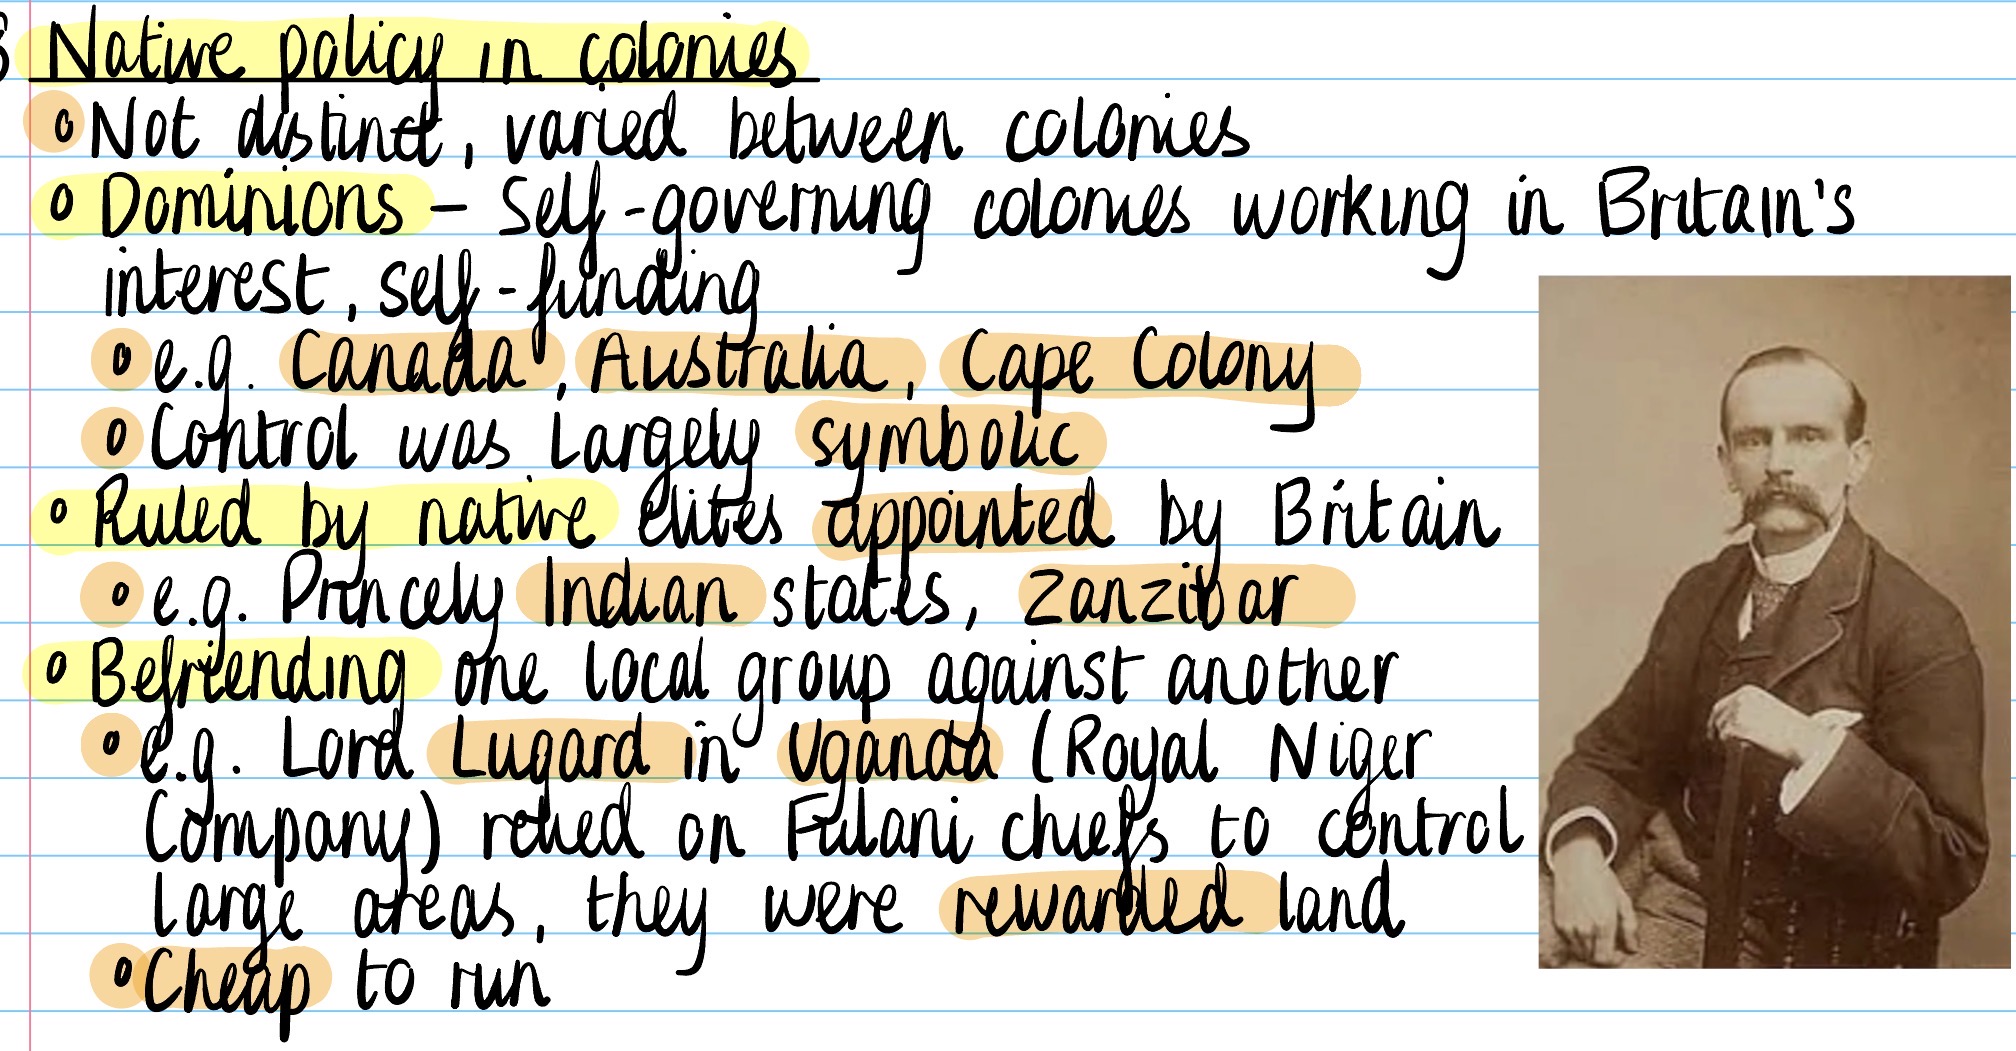 Native policy in colonies
o Not distinct, varied between colonies
o Dominions – Self-governing colonies working in Britain's
interest, self-funding
o e.g. Canada, Australia, Cape Colony
o Control was largely symbolic
o Ruled by native elites appointed by Britain
o e.g. Princely Indian states, Zanzibar
o Befriending one local group against another
o e.g. Lord Lugard in Uganda (Royal Niger
Company) relied on Fulani chiefs to control
large areas, they were rewarded land
o Cheap to run